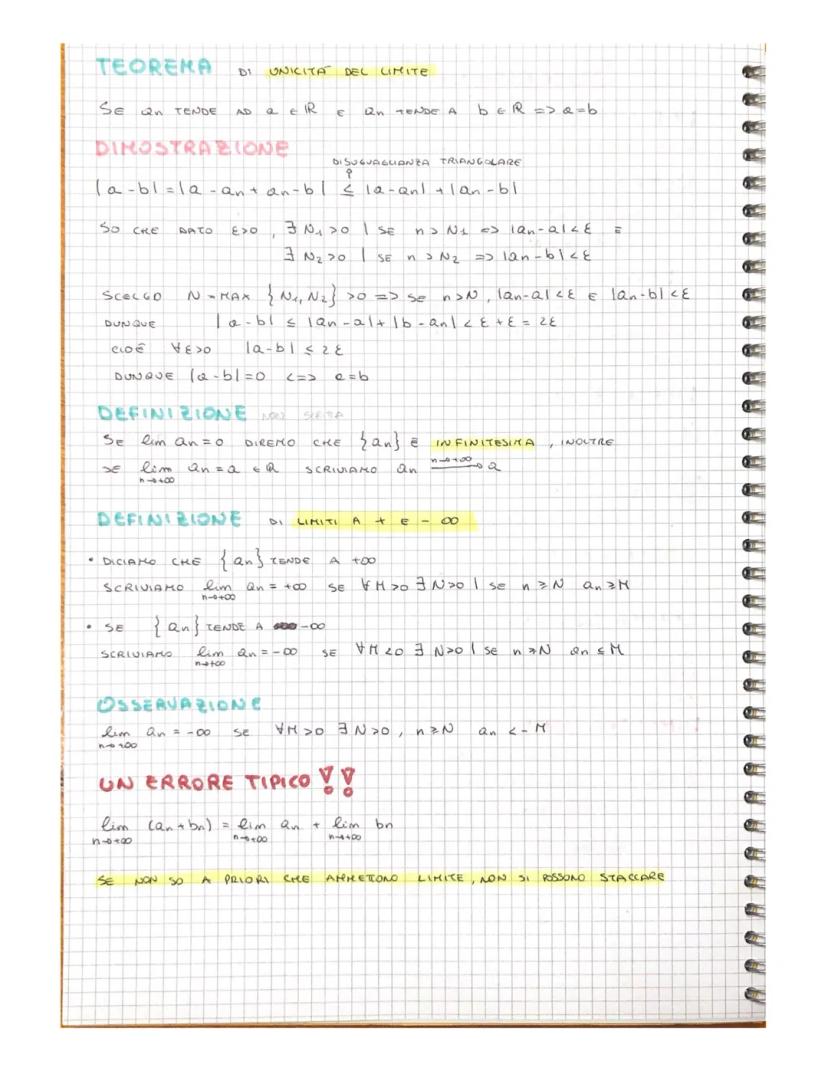 TEOREMA DI UNICITÀ DEL LIMITE
SE an TENDE AD a ∈ ℝ E an TENDE A b ∈ ℝ => a=b
DIMOSTRAZIONE
DISUGUAGLIANZA TRIANGOLARE
|a-b| = |a-an+an-b| ≤ |a-an| + |an-b|
SO CHE DATO ε>0, ∃ N1>0 | SE n>N1 => |an-a|<ε E
∃ N2>0 | SE n>N2 => |an-b|<ε
SCELGO N=MAX {N1,N2}>0 => SE n>N, |an-a|<ε E |an-b|<ε
DUNQUE |a-b| ≤ |an-a|+|b-an| < ε+ε = 2ε
CIOÈ ∀ε>0 |a-b| ≤ 2ε
DUNQUE |a-b|=0 <=> a=b
DEFINIZIONE NON
SE lim an=0 DIREMO CHE {an} È INFINITESIMA, INOLTRE
SE lim an=a ∈ ℝ SCRIVIAMO an n→+∞ → a
n→+∞
DEFINIZIONE DI LIMITI A + E - ∞
• DICIAMO CHE {an} TENDE A +∞
SCRIVIAMO lim an = +∞ SE ∀M>0 ∃N>0 | SE n≥N an≥M
n→+∞
• SE {an} TENDE A -∞
SCRIVIAMO lim an = -∞ SE ∀M<0 ∃N>0 | SE n≥N an≤M
n→+∞
OSSERVAZIONE
lim an = -∞ SE ∀M>0 ∃N>0, n≥N an<-M
n→+∞
UN ERRORE TIPICO !!
lim (an+bn) = lim an + lim bn
n→+∞ n→+∞ n→+∞
SE NON SO A PRIORI CHE AMMETTONO LIMITE, NON SI POSSONO STACCARE